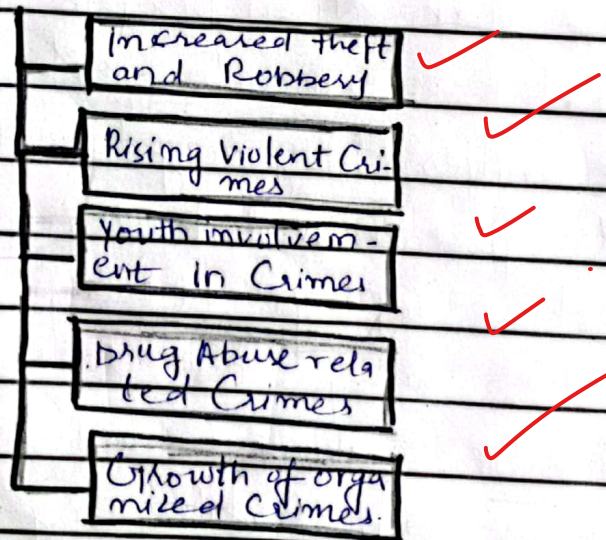 Increased theft
and Robbery
Rising Violent Cri-
mes
Youth involvem-
ent in Crimes
Drug Abuse rela
ted Crimes
Growth of orga
nized Crimes.